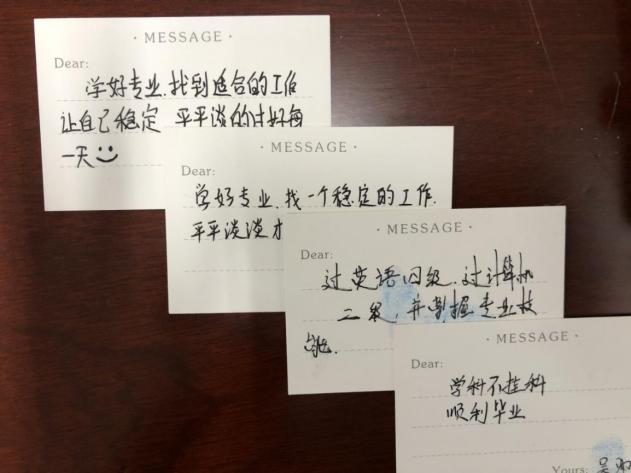 · MESSAGE ·
Dear:
学好专业.找到适合的工作
让自己稳定 平平淡的过好每
一天
· MESSAGE ·
Dear:
学好专业.找一个稳定的工作.
平平淡淡才
· MESSAGE ·
Dear:
过英语四级.过计算机
二级,并掌握专业技
能.
· MESSAGE ·
Dear:
学科不挂科
顺利毕业
Yours: 吴